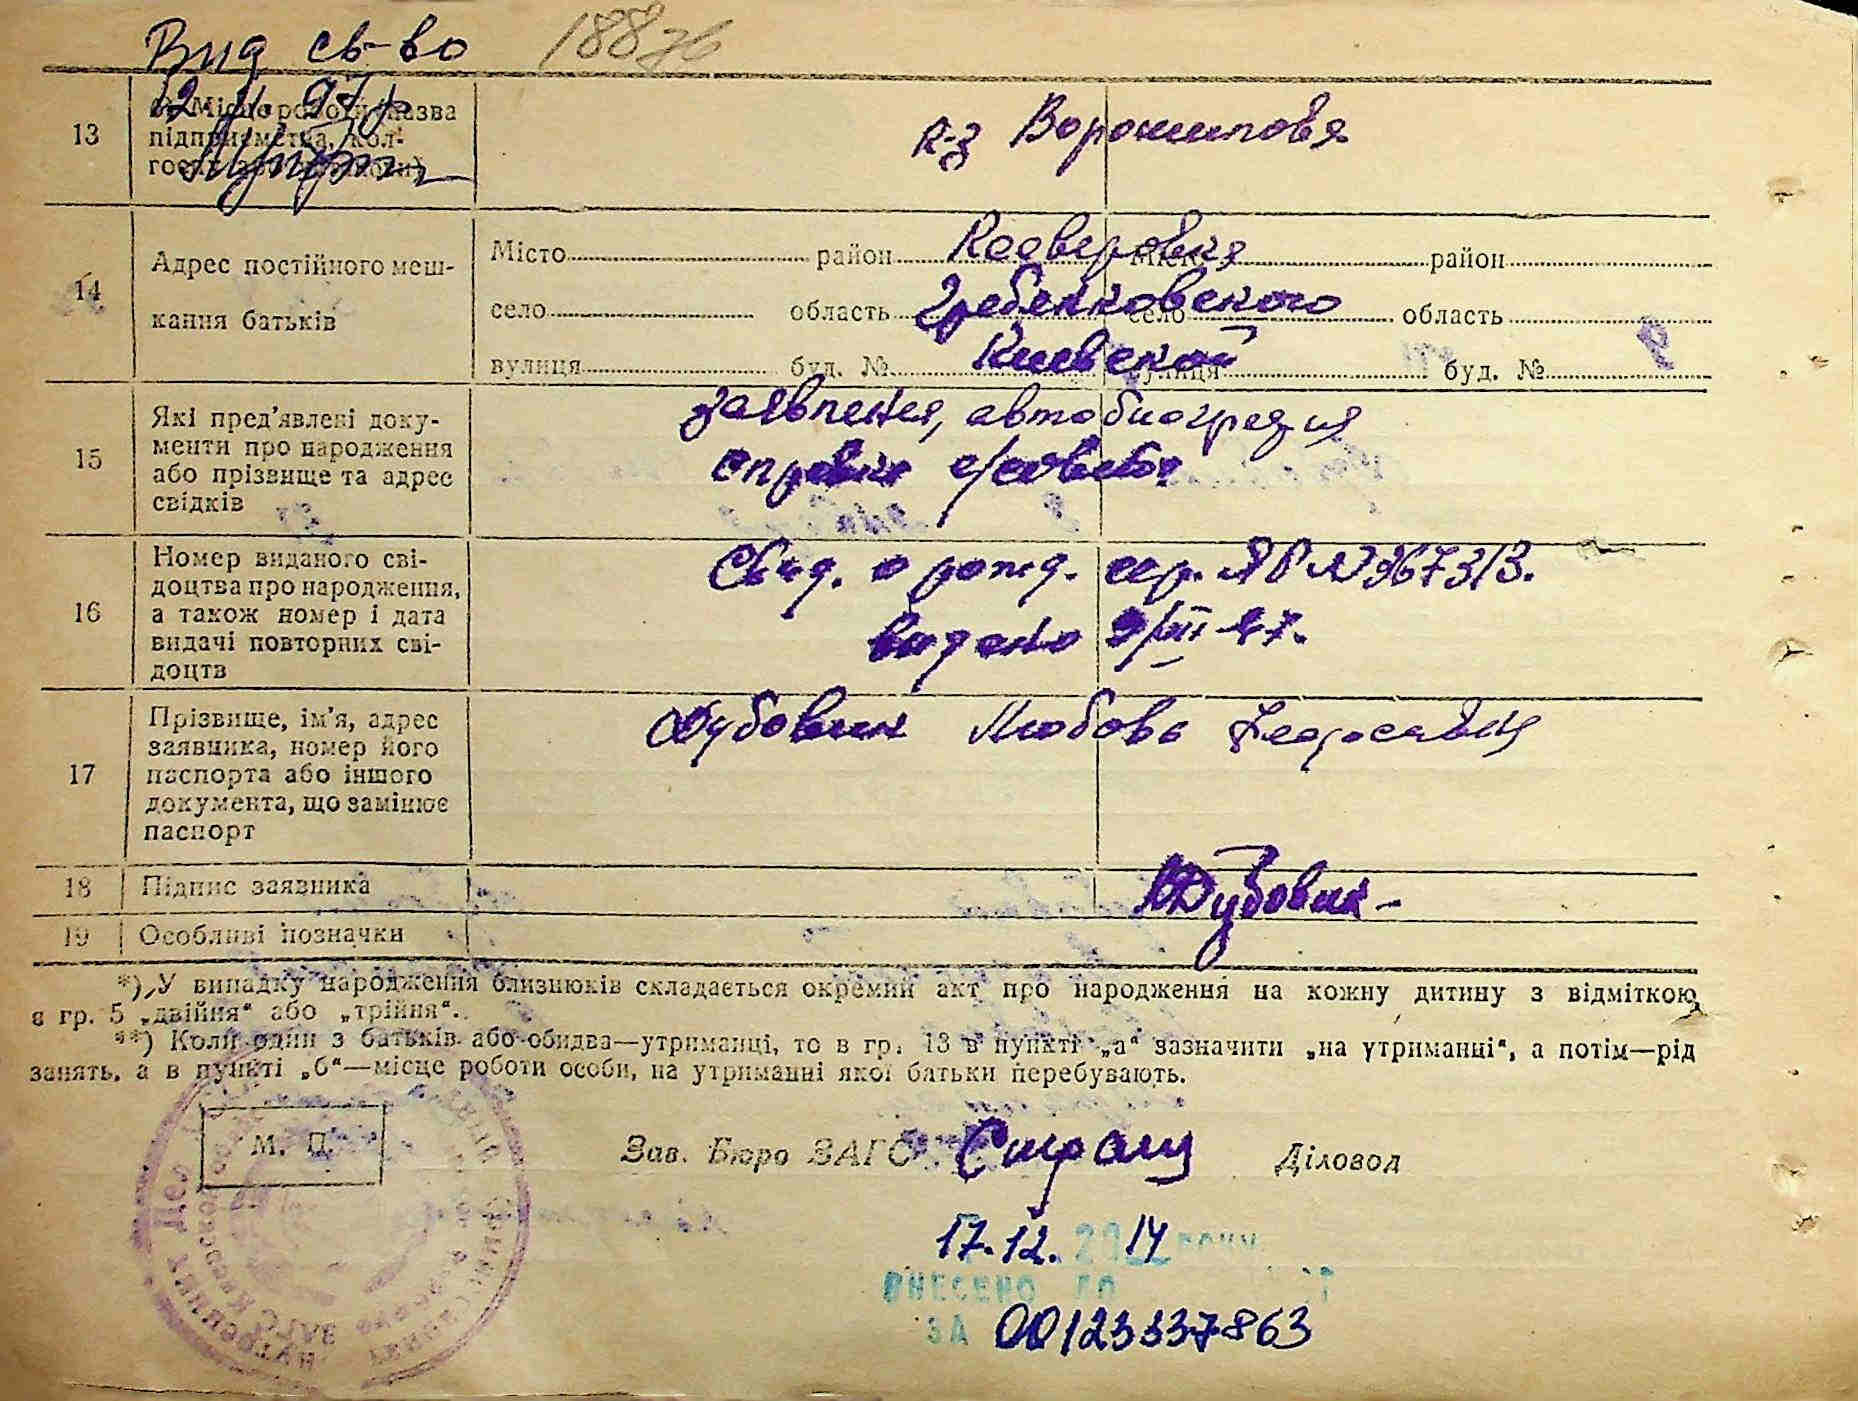 Вид св-во 188зв
13
б) Місце роботи (назва
підприємства, кол-
к-з Ворошилова
14
Адрес постійного меш-
кання батьків
Місто район Ксаверовка Місто район
село область Гребенковского село область
вулиця буд. № Киевской вулиця буд. №
15
Які пред'явлені доку-
менти про народження
або прізвище та адрес
свідків
заявления, автобиография
справка с/совета
16
Номер виданого сві-
доцтва про народження,
а також номер і дата
видачі повторних сві-
доцтв
Свид. о рожд. сер. ЯР № 367313.
видано 9/XII-47.
17
Прізвище, ім'я, адрес
заявника, номер його
паспорта або іншого
документа, що замінює
паспорт
Дубовик Любовь
18
Підпис заявника
Дубовик
19
Особливі позначки
*) У випадку народження близнюків складається окремий акт про народження на кожну дитину з відміткою
в гр. 5 „двійня“ або „трійня“.
**) Коли один з батьків або обидва—утриманці, то в гр. 13 в пункті „а“ зазначити „на утриманні“, а потім—рід
занять, а в пункті „б“—місце роботи особи, на утриманні якої батьки перебувають.
М. П.
Зав. Бюро ЗАГС Діловод
17.12. 2014 року
ВНЕСЕНО ДО
ЗА 00123337863